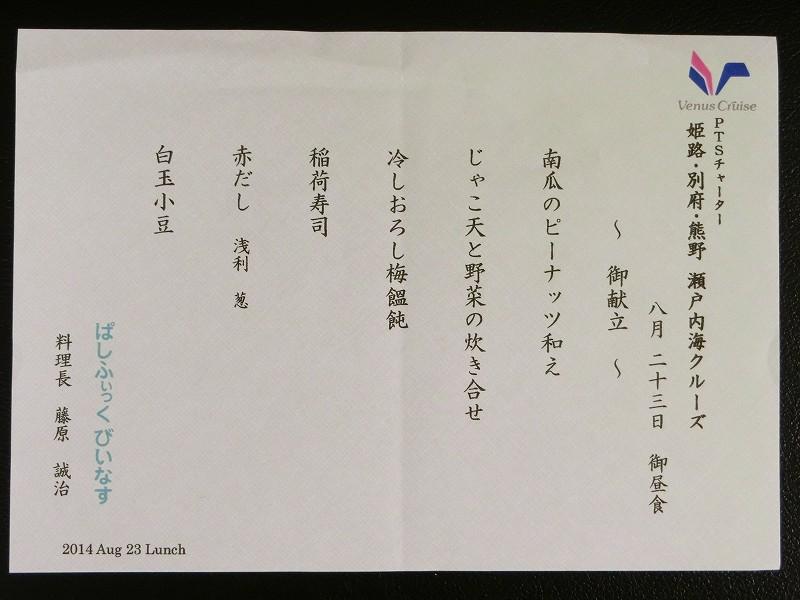 Venus Cruise
PTSチャーター
姫路・別府・熊野 瀬戸内海クルーズ
八月 二十三日 御昼食
～ 御献立 ～
南瓜のピーナッツ和え
じゃこ天と野菜の炊き合せ
冷しおろし梅饂飩
稲荷寿司
赤だし 浅利 葱
白玉小豆
ぱしふぃっく びいなす
料理長 藤原 誠治
2014 Aug 23 Lunch